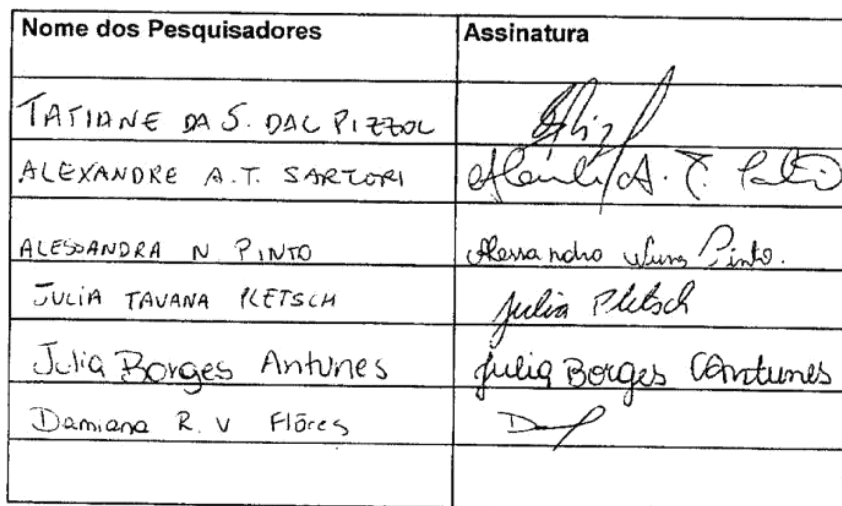 Nome dos Pesquisadores Assinatura
TATIANE DA S. DAL PIZZOL
ALEXANDRE A.T. SARTORI A. T.
ALESSANDRA N PINTO Alessandra Nunes Pinto.
JULIA TAVANA PLETSCH Julia Pletsch
Julia Borges Antunes Julia Borges Antunes
Damiana R. V Flôres